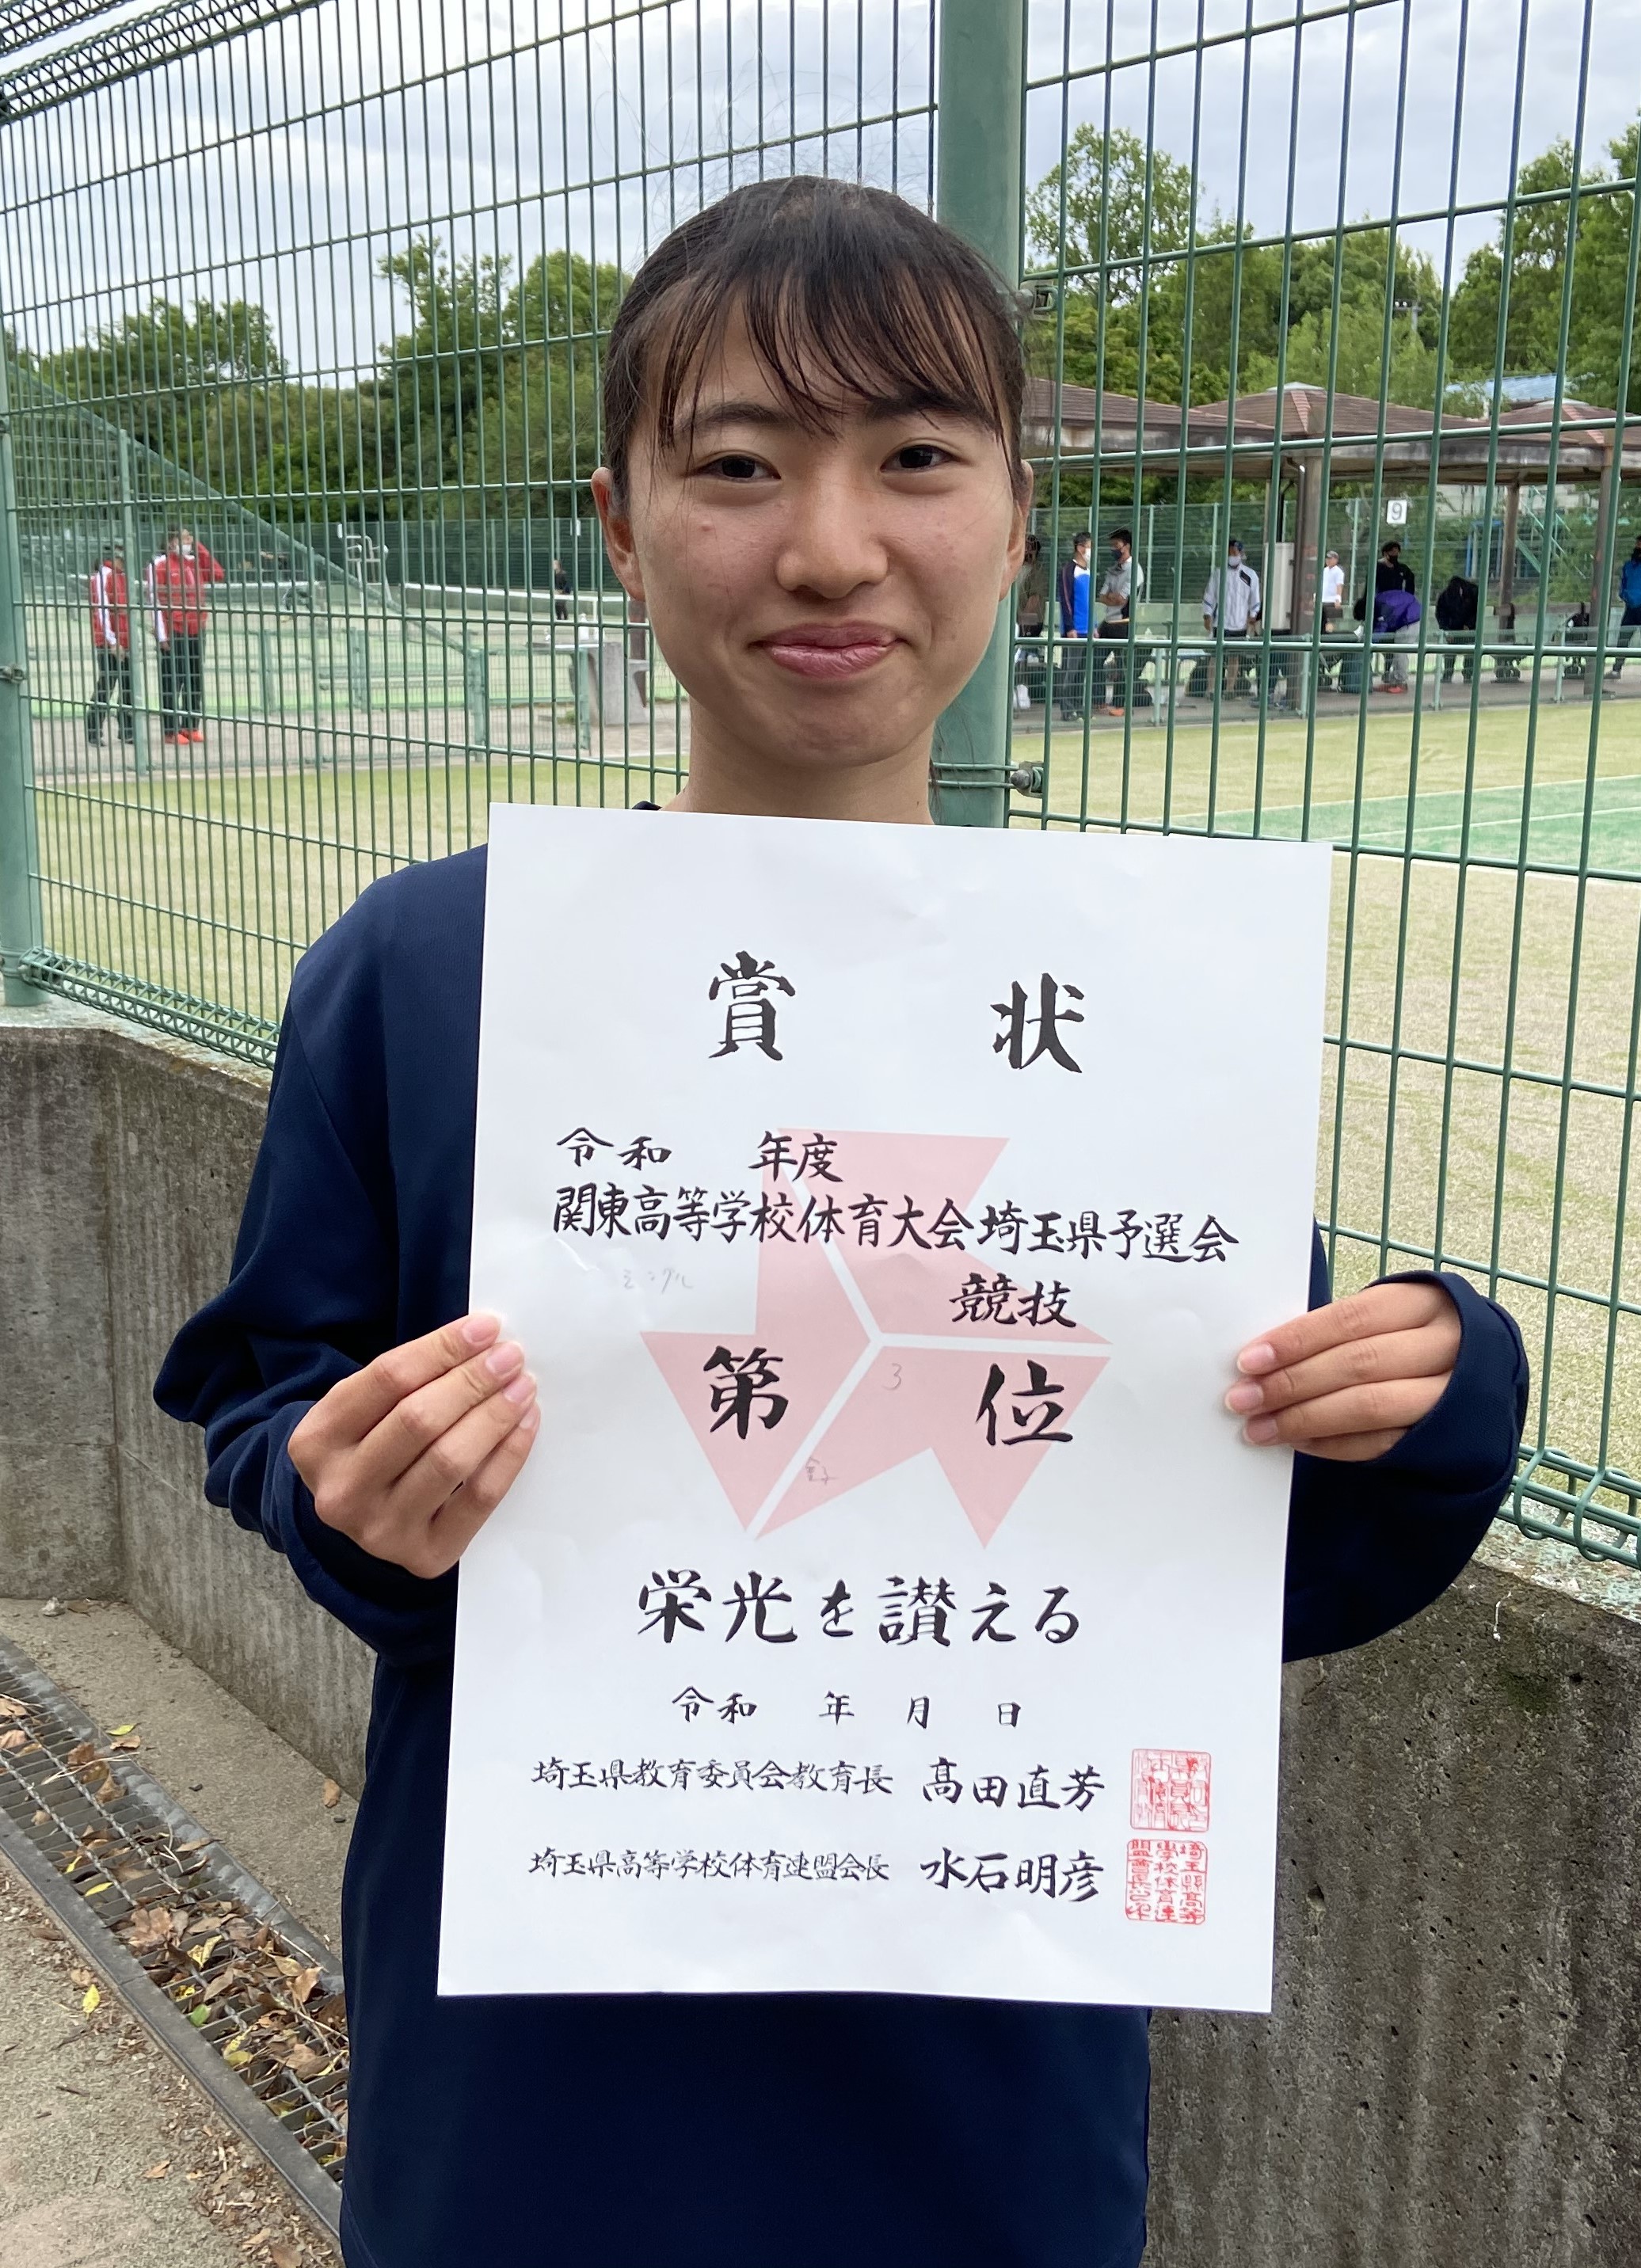 9
賞 状
令和 年度
関東高等学校体育大会埼玉県予選会
シングル
競技
第 3 位
栄光を讃える
令和 年 月 日
埼玉県教育委員会教育長 髙田直芳
埼玉県高等学校体育連盟会長 水石明彦